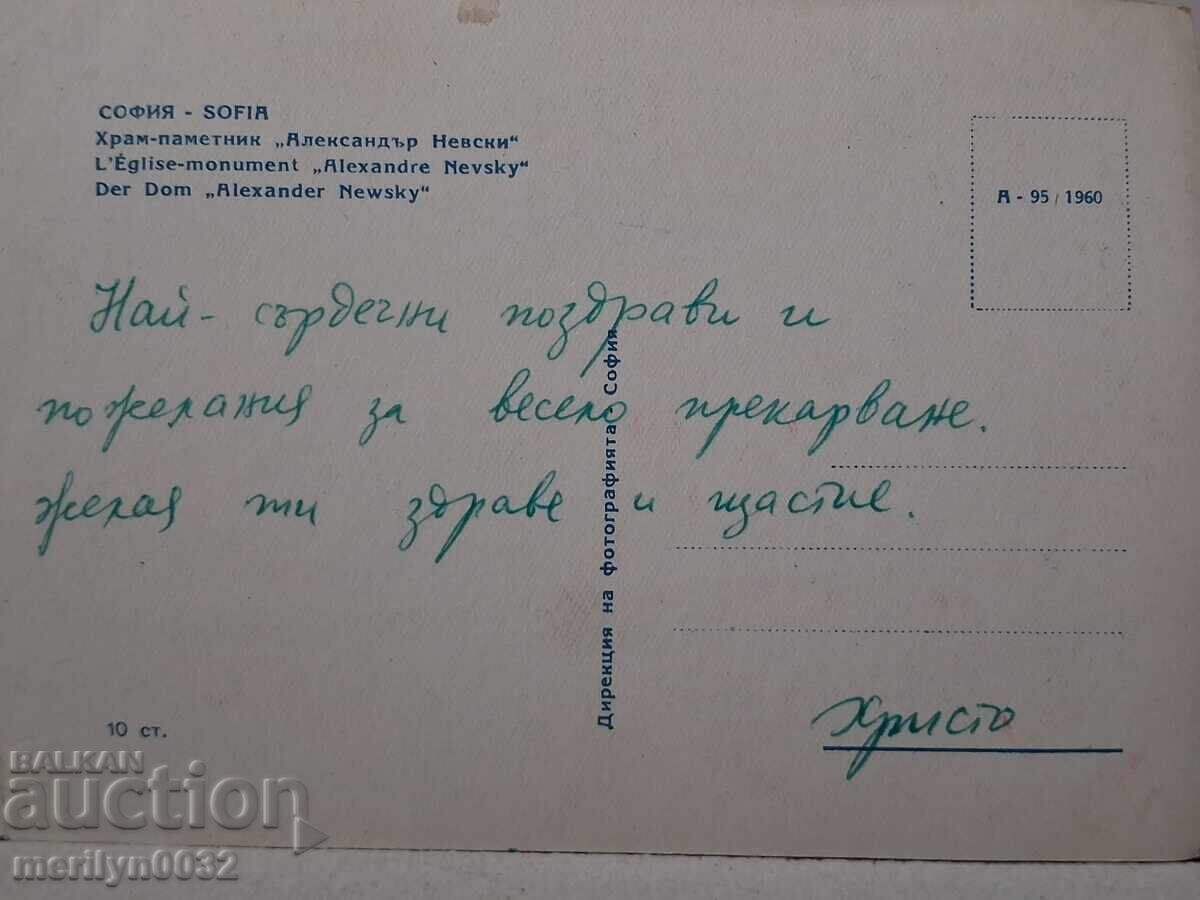 СОФИЯ - SOFIA
Храм-паметник „Александър Невски“
L'Église-monument „Alexandre Nevsky“
Der Dom „Alexander Newsky“
А - 95 / 1960
Най- сърдечни поздрави и
пожелания за весело прекарване.
Желая ти здраве и щастие.
Христо
Дирекция на фотографията - София
10 ст.
BALKAN
auction
merilyn0032